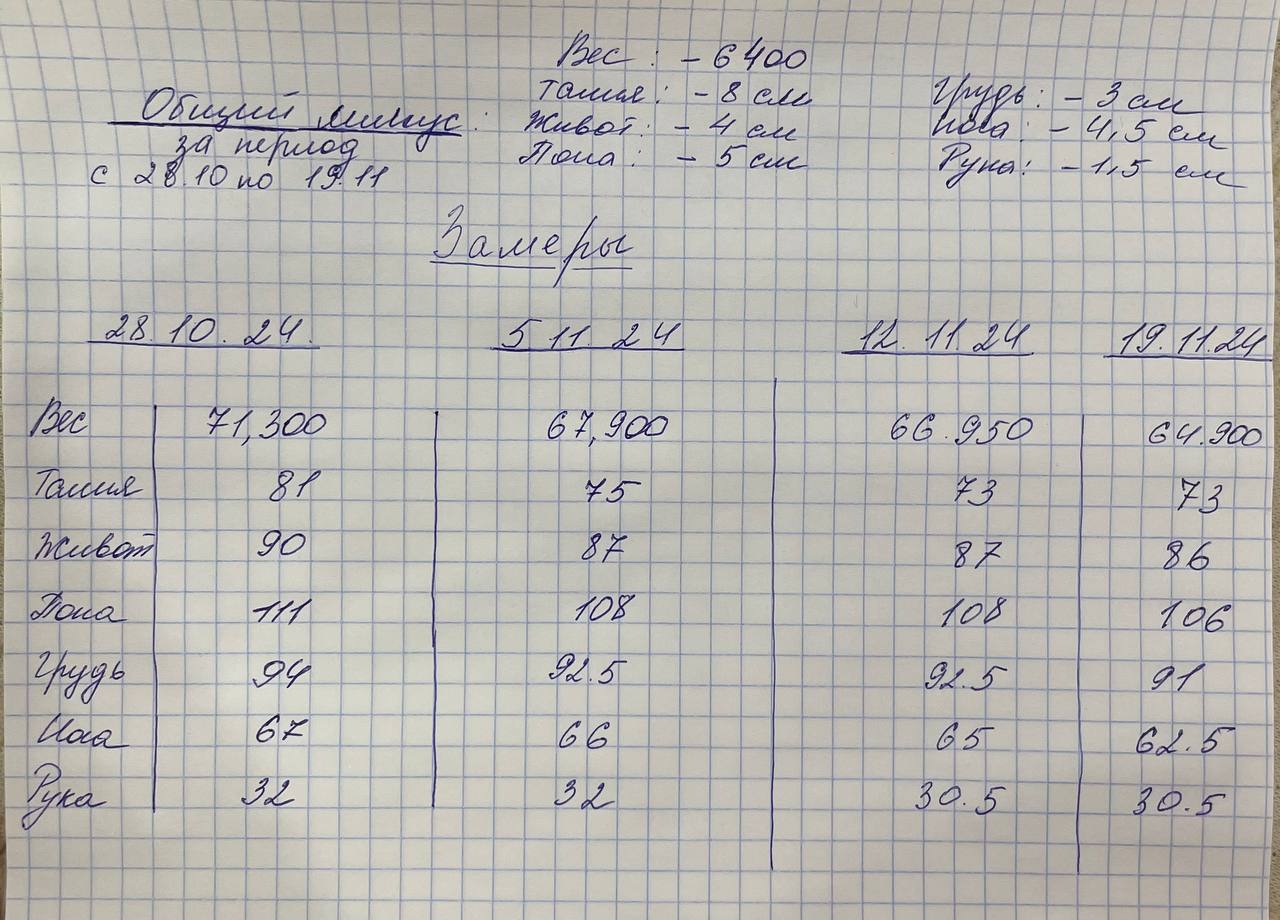 Вес : - 6400
Общий минус : Талия : - 8 см Грудь : - 3 см
за период Живот : - 4 см Нога : - 4,5 см
с 28.10 по 19.11 Попа : - 5 см Рука : - 1,5 см
Замеры
28.10.24. 5 11. 24 12. 11.24 19.11.24
Вес 71,300 67,900 66.950 64.900
Талия 81 75 73 73
Живот 90 87 87 86
Попа 111 108 108 106
Грудь 94 92.5 92.5 91
Нога 67 66 65 62.5
Рука 32 32 30.5 30.5